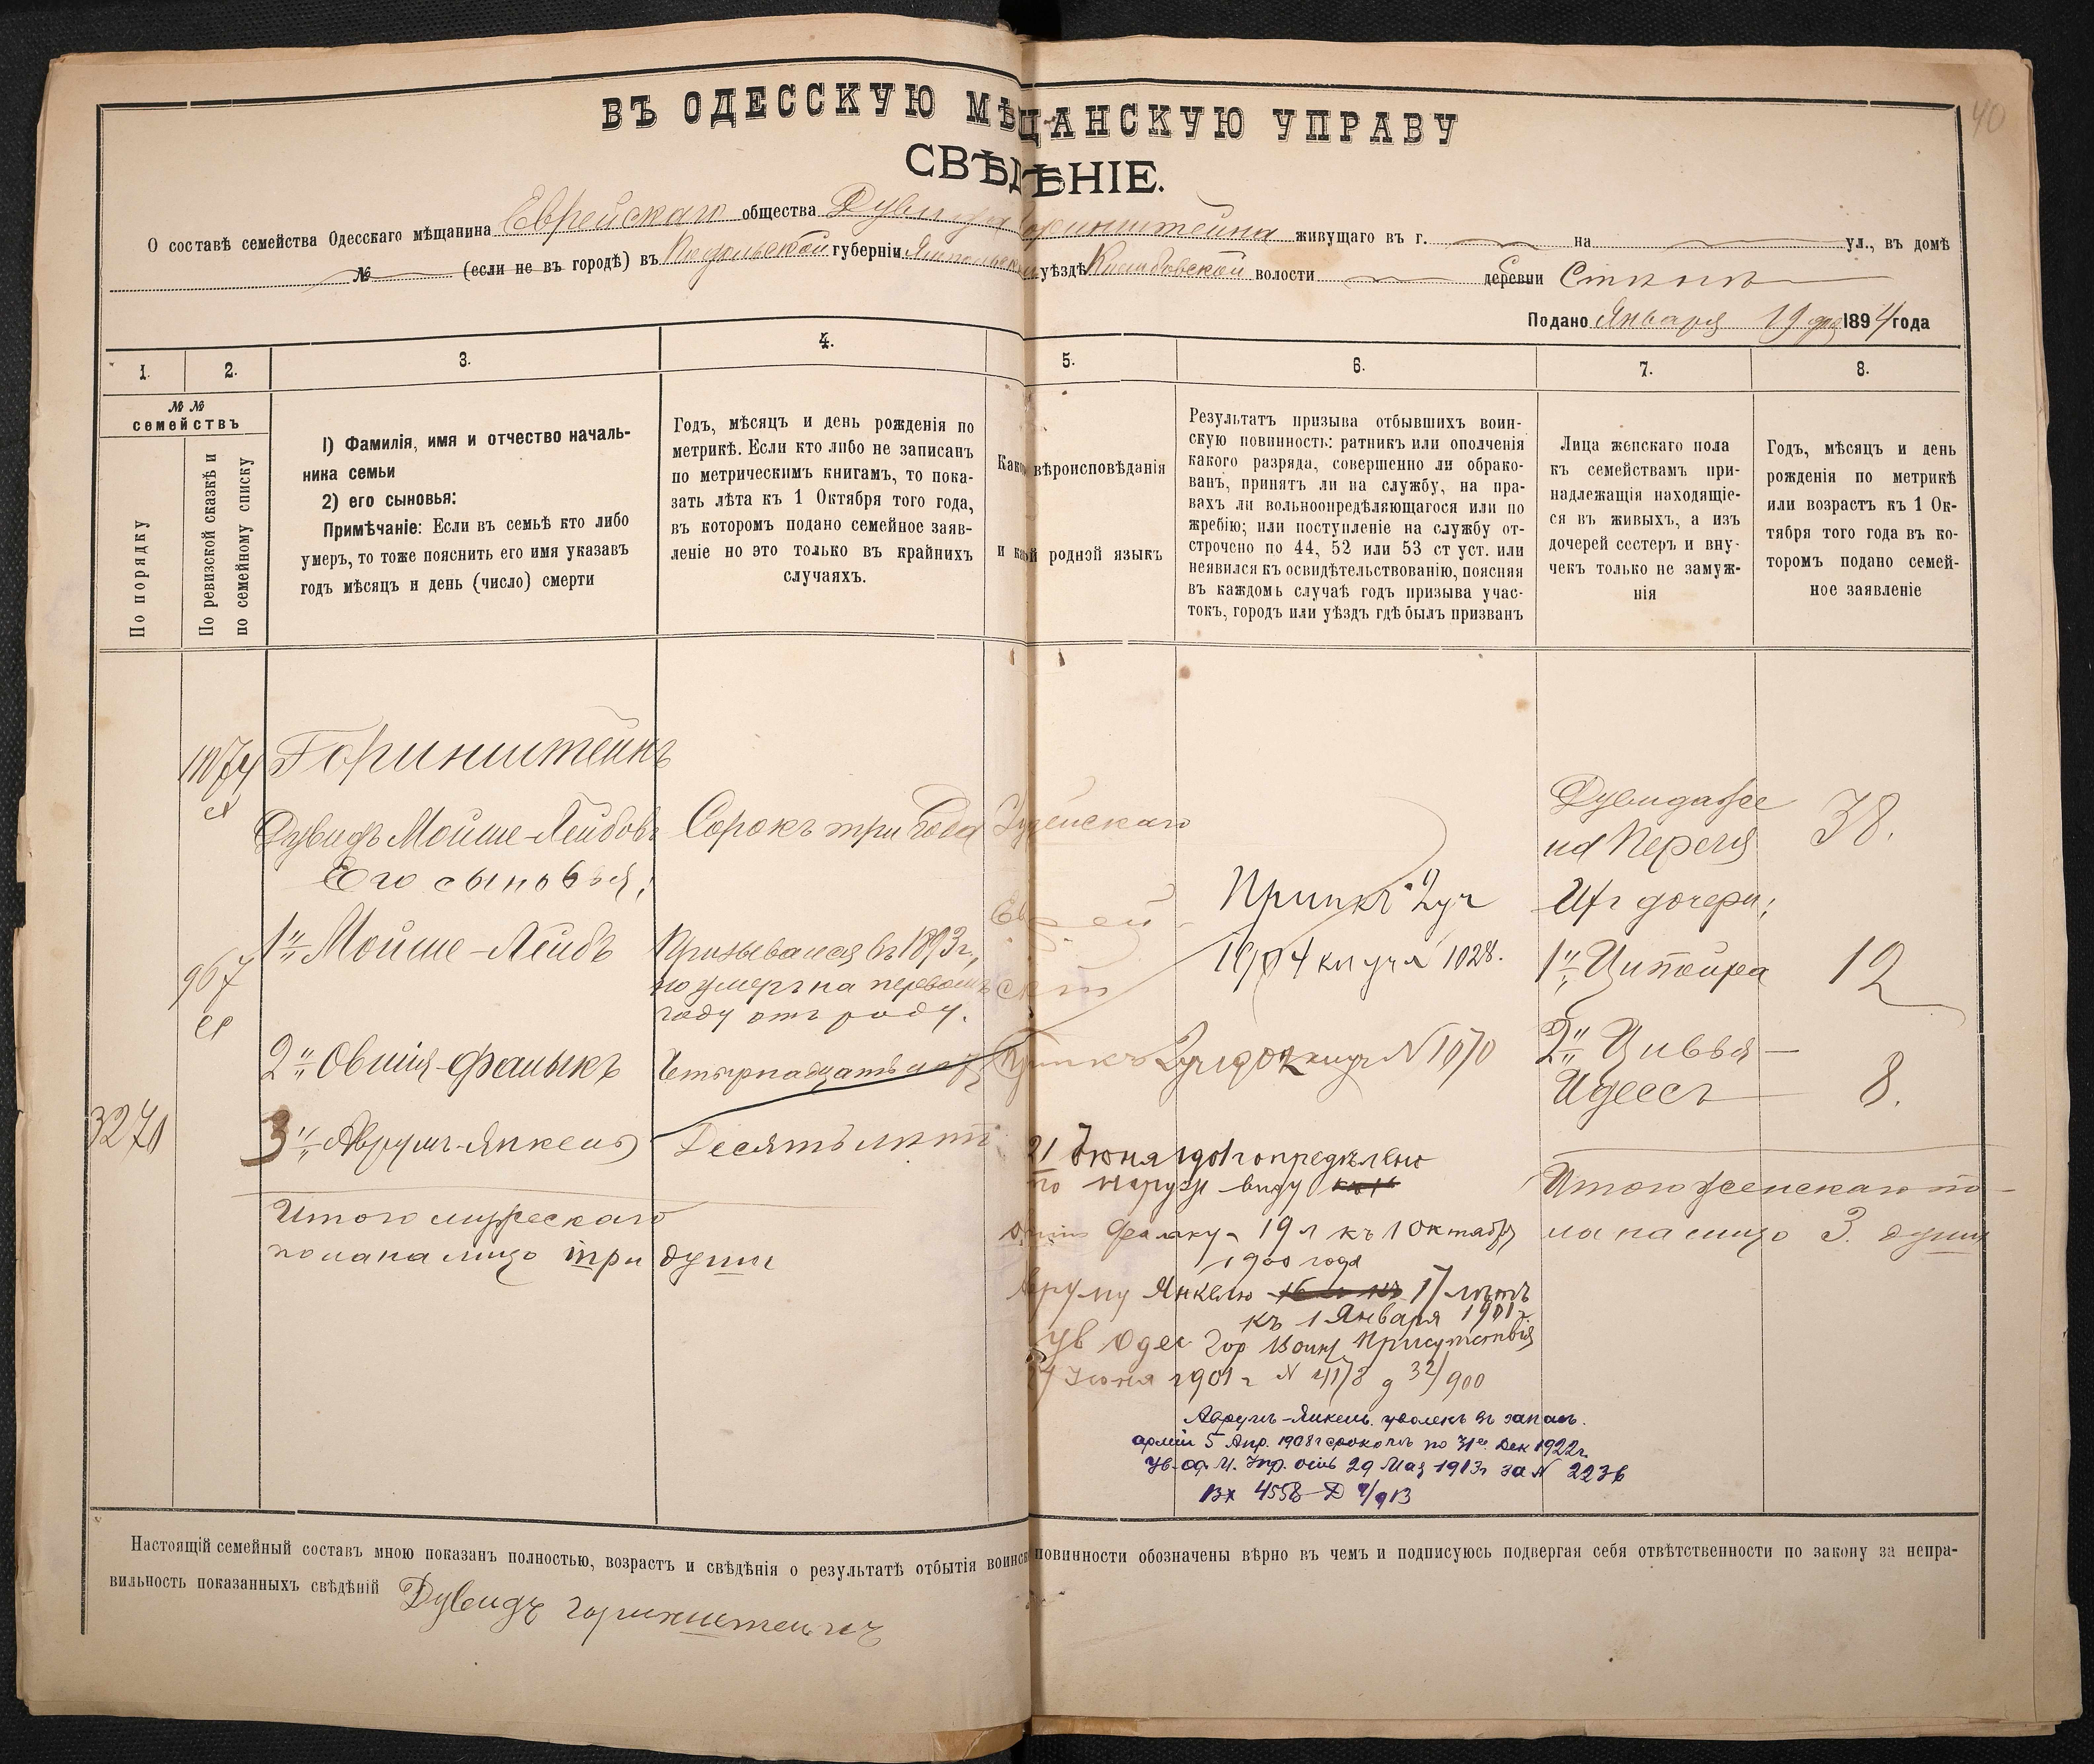 40
ВЪ ОДЕССКУЮ МѢЩАНСКУЮ УПРАВУ
СВѢДѢНІЕ.
О составѣ семейства Одесскаго мѣщанина Еврейскаго общества Дувида Горинштейна живущаго въ г. на ул., въ домѣ
№ (если не въ городѣ) въ Подольской губерніи Ямпольскомъ уѣздѣ волости деревни
Подано Января 19 дня 1894 года
1.
2.
3.
4.
5.
6.
7.
8.
№ №
семействъ
По порядку
По ревизской сказкѣ и
по семейному списку
1) Фамилія, имя и отчество началь-
ника семьи
2) его сыновья:
Примѣчаніе: Если въ семьѣ кто либо
умеръ, то тоже пояснить его имя указавъ
годъ мѣсяцъ и день (число) смерти
Годъ, мѣсяцъ и день рожденія по
метрикѣ. Если кто либо не записанъ
по метрическимъ книгамъ, то пока-
зать лѣта къ 1 Октября того года,
въ которомъ подано семейное заяв-
леніе но это только въ крайнихъ
случаяхъ.
Какого вѣроисповѣданія
и какой родной языкъ
Результатъ призыва отбывшихъ воин-
скую повинность: ратникъ или ополченія
какого разряда, совершенно ли обрако-
ванъ, принятъ ли на службу, на пра-
вахъ ли вольноопредѣляющагося или по
жребію; или поступленіе на службу от-
строчено по 44, 52 или 53 ст уст. или
неявился къ освидѣтельствованію, поясняя
въ каждомъ случаѣ годъ призыва учас-
токъ, городъ или уѣздъ гдѣ былъ призванъ
Лица женскаго пола
къ семействамъ при-
надлежащія находящіе-
ся въ живыхъ, а изъ
дочерей сестеръ и вну-
чекъ только не замуж-
нія
Годъ, мѣсяцъ и день
рожденія по метрикѣ
или возрастъ къ 1 Ок-
тября того года въ ко-
торомъ подано семей-
ное заявленіе
Горинштейнъ
Дувидъ Мойше-Лейбовъ Сорокъ три года Іудейскаго
Дувида же
на Перля 38.
Его сыновья:
Еврей-
скій
Припис 2 уч
1904 кл уч № 1028.
Ихъ дочери:
967
1" Мойше-Лейбъ Призывался въ 1893 г.,
но умеръ на первомъ
году отъ роду.
1" Ципойра 12
2" Овшія-Фалыкъ Четырнадцать лѣтъ № 1070
2" Цивья-
Идесъ 8.
3271 3" Аврумъ-Янкель Десять лѣтъ
Итого мужескаго
пола на лицо три души
21 Іюня 1901 г опредѣлено
по наружн виду
Овшію Фалыку - 19 л къ 1 Октября
1900 года
Авруму Янкелю 17 лѣтъ
къ 1 Января 1901 г
Ув Одес Гор Воин Присутствія
Іюня 1901 г № 4178 д 32/900
Итого женскаго по-
ла на лицо 3 души
Аврумъ-Янкель уволенъ въ запасъ
арміи 5 Апр. 1908 г срокомъ по 31е Дек 1922 г.
Ув. Од. М. Упр. отъ 29 Мая 1913 г за № 2236
Вх 4558
Настоящій семейный составъ мною показанъ полностью, возрастъ и свѣдѣнія о результатѣ отбытія воинской повинности обозначены вѣрно въ чемъ и подписуюсь подвергая себя отвѣтственности по закону за непра-
вильность показанныхъ свѣдѣній Дувидъ Горинштейнъ